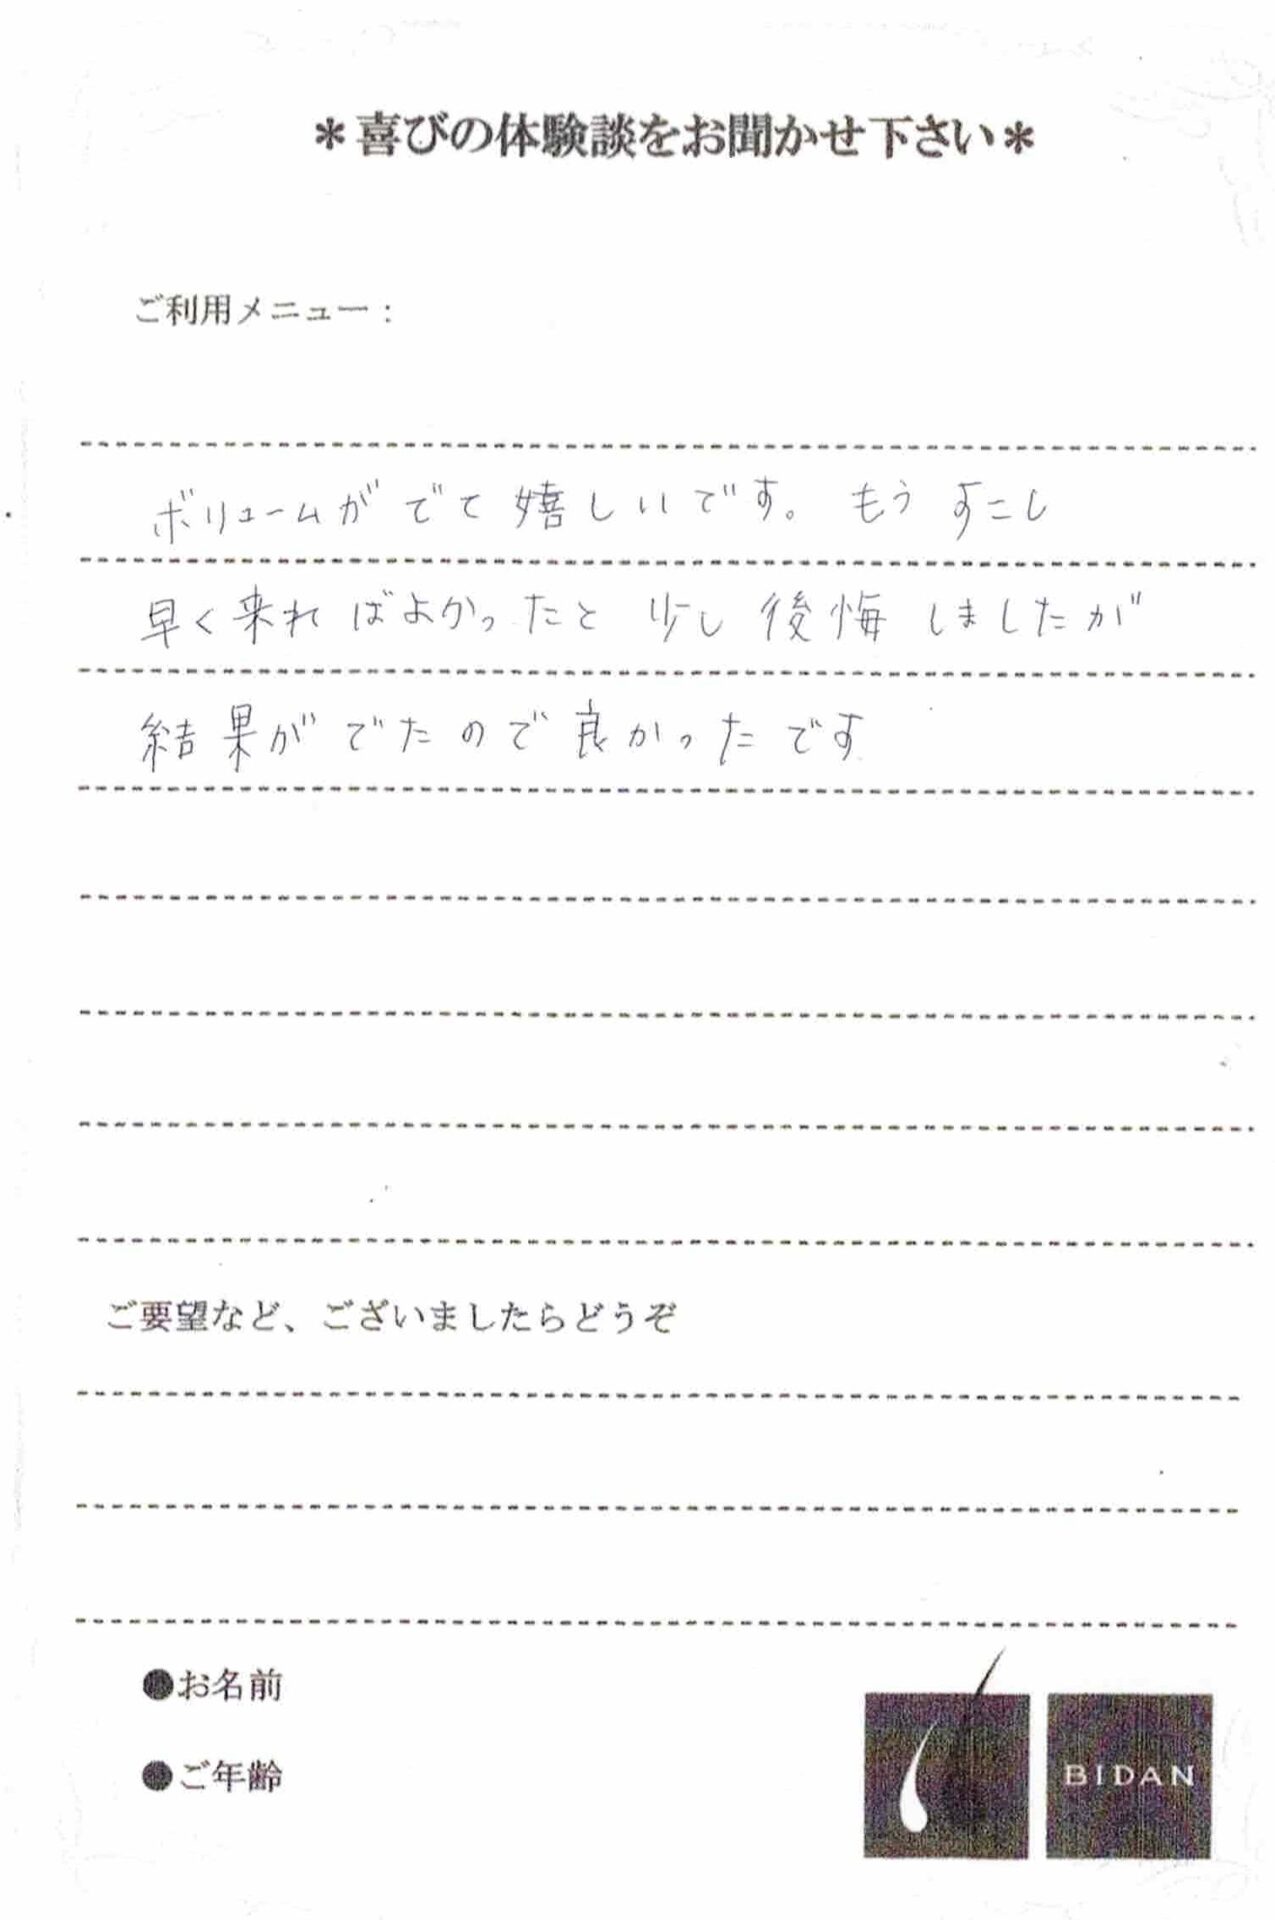 ＊喜びの体験談をお聞かせ下さい＊
ご利用メニュー：
ボリュームがでて嬉しいです。もうすこし
早く来ればよかったと少し後悔しましたが
結果がでたので良かったです
ご要望など、ございましたらどうぞ
●お名前
●ご年齢
BIDAN